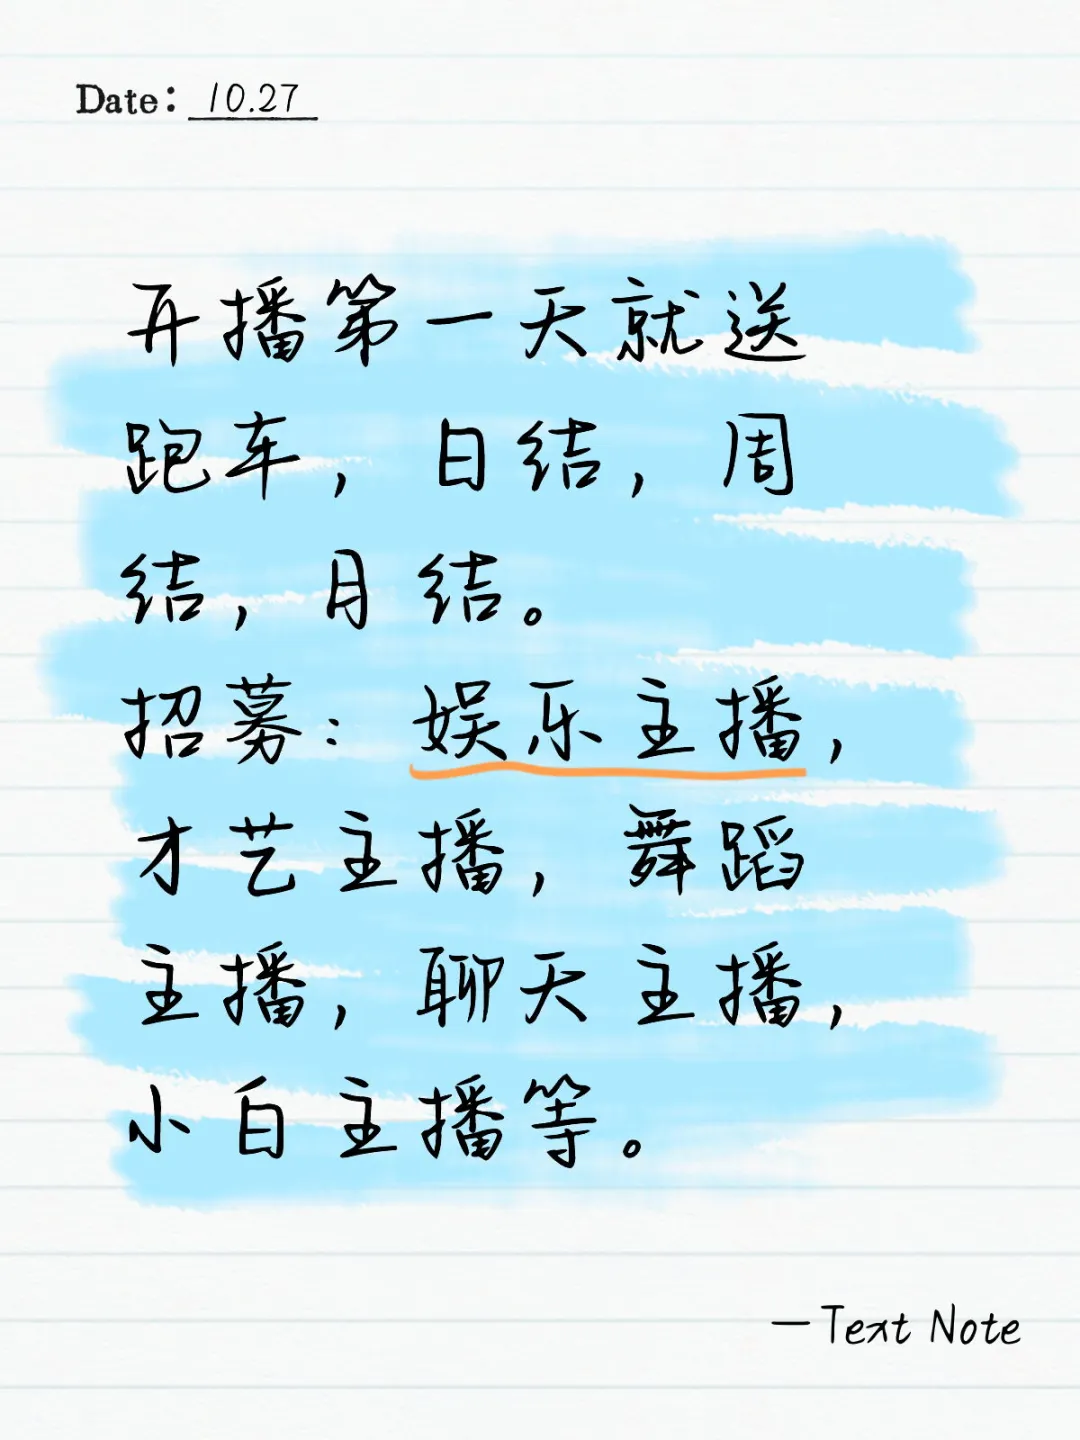 Date: 10.27
开播第一天就送
跑车，日结，周
结，月结。
招募：娱乐主播，
才艺主播，舞蹈
主播，聊天主播，
小白主播等。
—Text Note